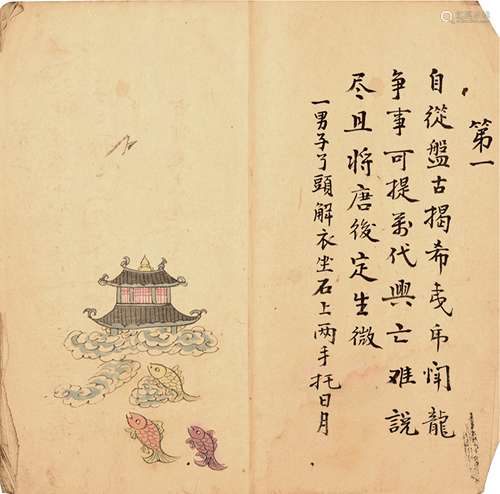 第一
自從盤古揭希夷閗龍
争事可提萬代興亡难説
尽且將唐後定生微
一男子了頭解衣坐石上两手托日月